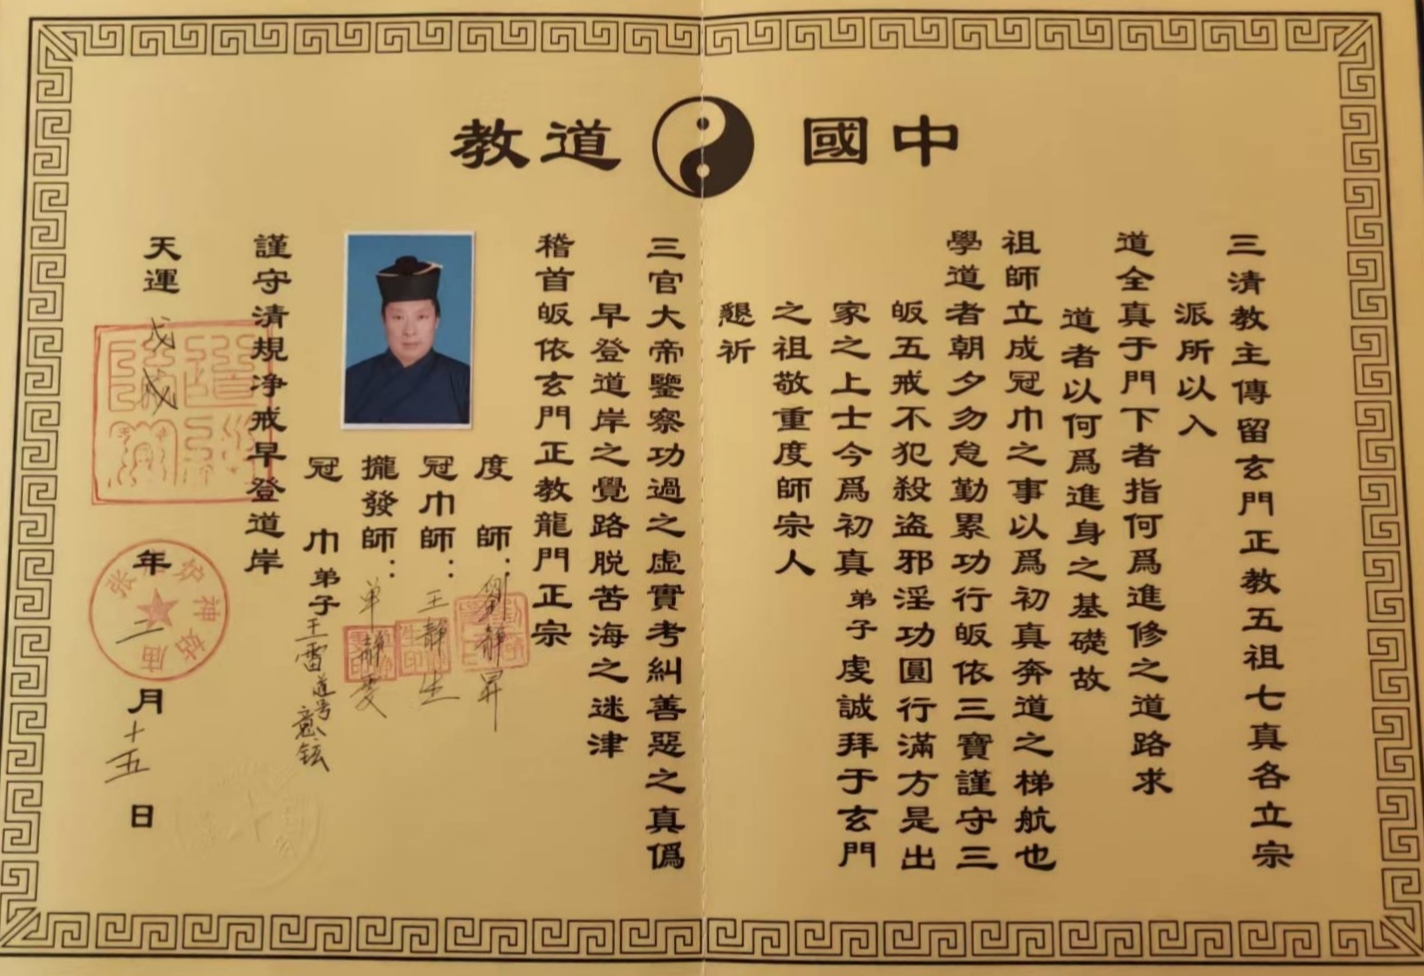 中國道教
三清教主傳留玄門正教五祖七真各立宗
派所以入
道全真于門下者指何爲進修之道路求
道者以何爲進身之基礎故
祖師立成冠巾之事以爲初真奔道之梯航也
學道者朝夕勿怠勤累功行皈依三寶謹守三
皈五戒不犯殺盗邪淫功圓行滿方是出
家之上士今爲初真弟子虔誠拜于玄門
之祖敬重度師宗人
懇祈
三官大帝鑒察功過之虛實考糾善惡之真僞
早登道岸之覺路脱苦海之迷津
稽首皈依玄門正教龍門正宗
度師：劉靜昇
冠巾師：王靜生
攏發師：单靜
冠巾弟子王雷道号
謹守清規净戒早登道岸
天運戊戌年二月十五日